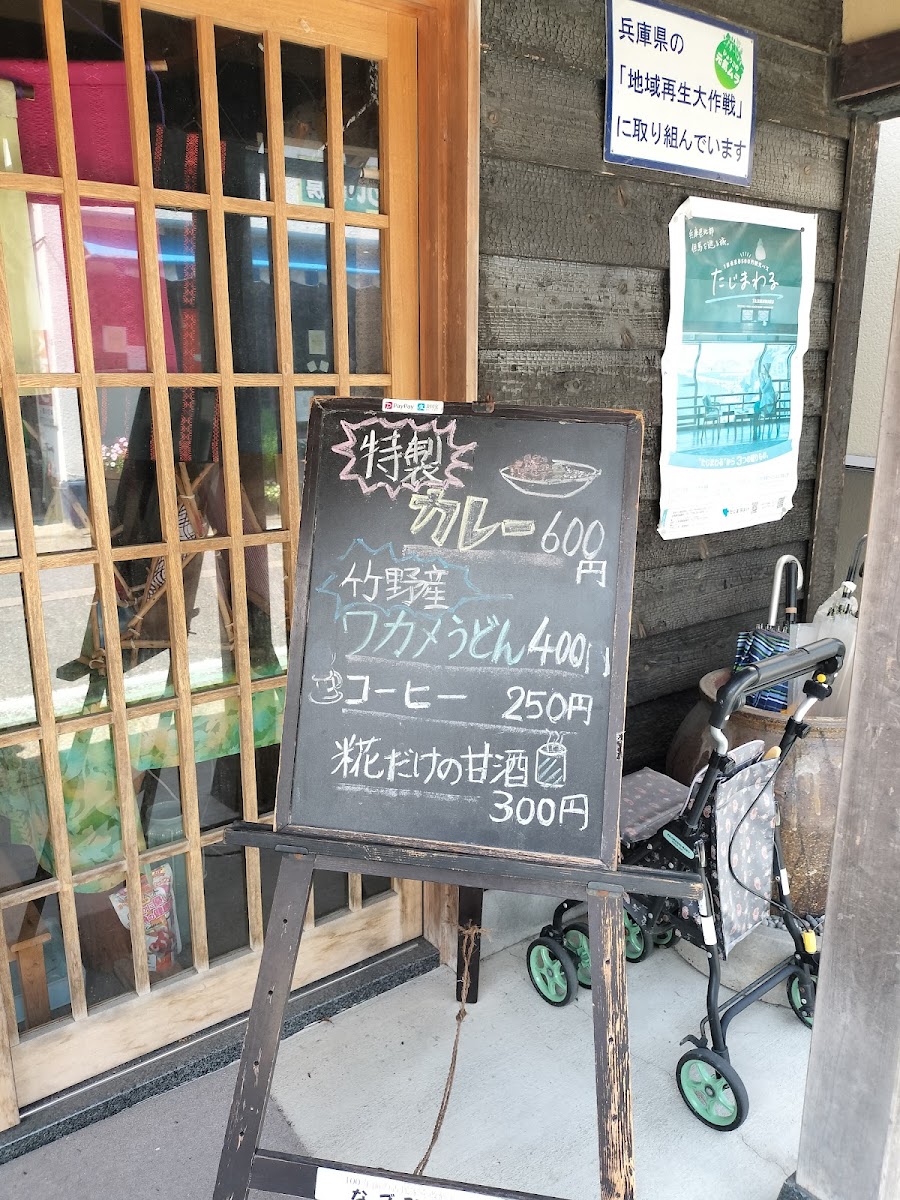 兵庫県の
「地域再生大作戦」
に取り組んでいます
元気ムラ
たじまわる
PayPay
特製
カレー 600
円
竹野産
ワカメうどん 400円
コーヒー 250円
糀だけの甘酒
300円